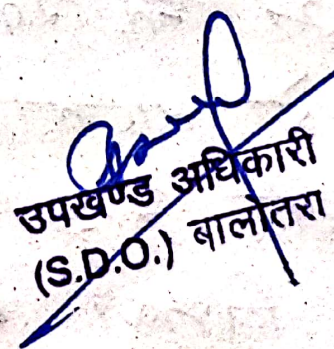 उपखण्ड अधिकारी
(S.D.O.) बालोतरा